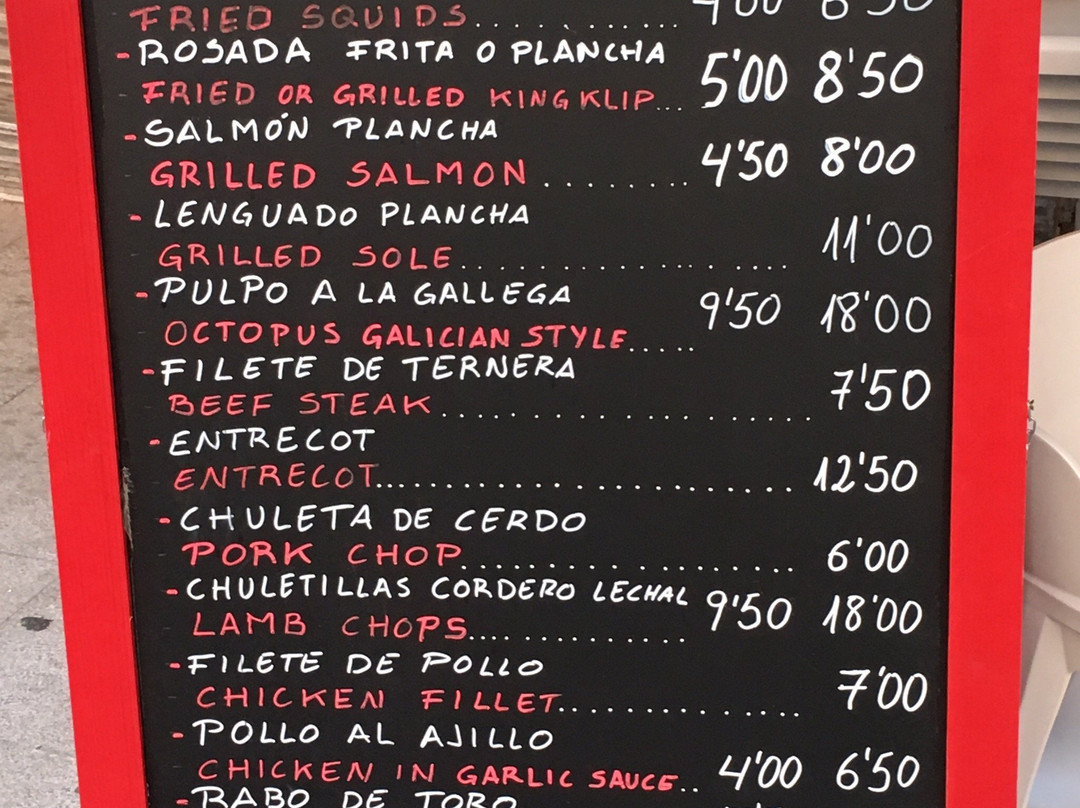 FRIED SQUIDS............
-ROSADA FRITA O PLANCHA
FRIED OR GRILLED KINGKLIP... 5'00 8'50
-SALMÓN PLANCHA
GRILLED SALMON......... 4'50 8'00
-LENGUADO PLANCHA
GRILLED SOLE..................... 11'00
-PULPO A LA GALLEGA
OCTOPUS GALICIAN STYLE..... 9'50 18'00
-FILETE DE TERNERA
BEEF STEAK........................ 7'50
-ENTRECOT
ENTRECOT........................... 12'50
-CHULETA DE CERDO
PORK CHOP.................... 6'00
-CHULETILLAS CORDERO LECHAL
LAMB CHOPS............... 9'50 18'00
-FILETE DE POLLO
CHICKEN FILLET.............. 7'00
-POLLO AL AJILLO
CHICKEN IN GARLIC SAUCE.. 4'00 6'50
-RABO DE TORO